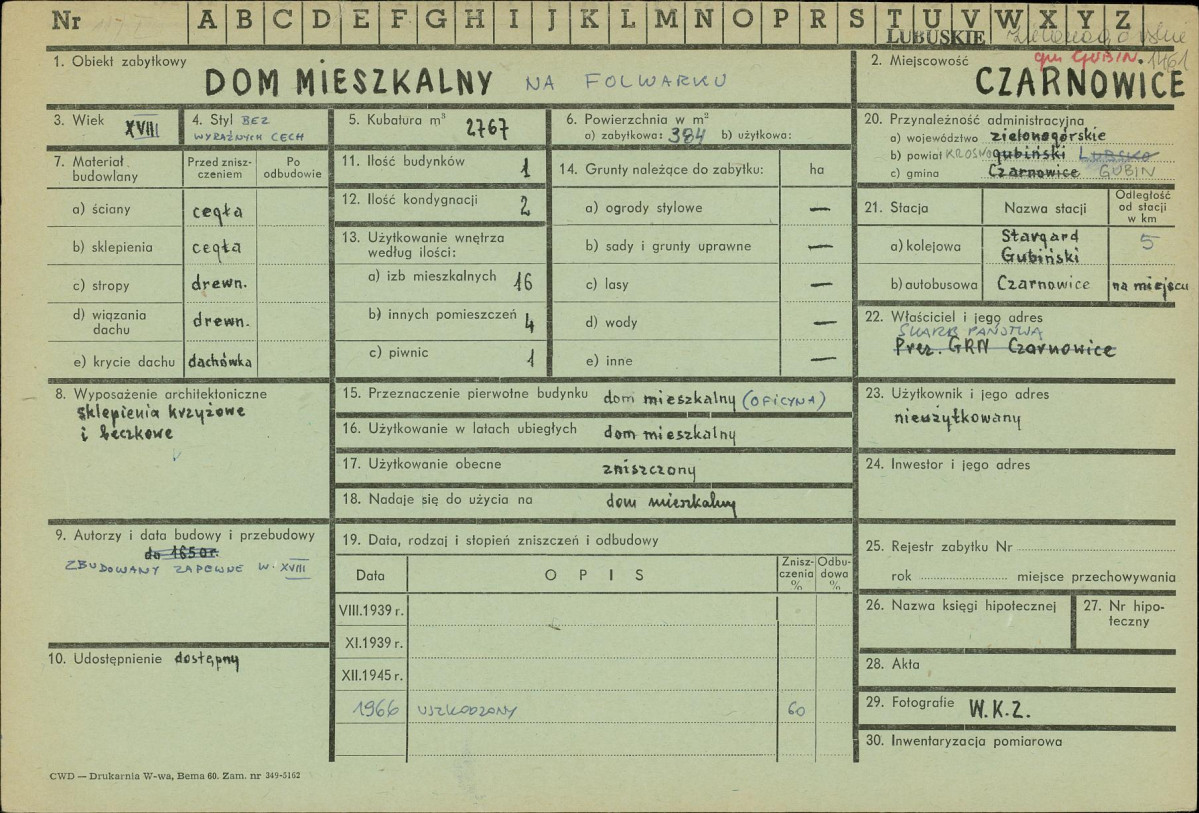 Nr A B C D E F G H I J K L M N O P R S T U V W X Y Z
LUBUSKIE
gm GUBIN. 1461
1. Obiekt zabytkowy
DOM MIESZKALNY NA FOLWARKU
2. Miejscowość
CZARNOWICE
3. Wiek XVIII
4. Styl BEZ
WYRAŹNYCH CECH
5. Kubatura m³ 2767
6. Powierzchnia w m²
a) zabytkowa: 384 b) użytkowa:
7. Materiał budowlany
Przed zniszczeniem
Po odbudowie
a) ściany cegła
b) sklepienia cegła
c) stropy drewn.
d) wiązania dachu drewn.
e) krycie dachu dachówka
8. Wyposażenie architektoniczne
sklepienia krzyżowe
i beczkowe
9. Autorzy i data budowy i przebudowy
do 1650r.
ZBUDOWANY ZAPEWNE W. XVIII
10. Udostępnienie dostępny
11. Ilość budynków 1
12. Ilość kondygnacji 2
13. Użytkowanie wnętrza
według ilości:
a) izb mieszkalnych 16
b) innych pomieszczeń 4
c) piwnic 1
14. Grunty należące do zabytku: ha
a) ogrody stylowe —
b) sady i grunty uprawne —
c) lasy —
d) wody —
e) inne —
15. Przeznaczenie pierwotne budynku dom mieszkalny (OFICYNA)
16. Użytkowanie w latach ubiegłych dom mieszkalny
17. Użytkowanie obecne zniszczony
18. Nadaje się do użycia na dom mieszkalny
19. Data, rodzaj i stopień zniszczeń i odbudowy
Data OPIS Zniszczenia % Odbudowa %
VIII.1939 r.
XI.1939 r.
XII.1945 r.
1966 USZKODZONY 60
20. Przynależność administracyjna
a) województwo zielonogórskie
b) powiat KROSNO gubiński LUBSKO
c) gmina Czarnowice GUBIN
21. Stacja Nazwa stacji Odległość od stacji w km
a) kolejowa Stargard Gubiński 5
b) autobusowa Czarnowice na miejscu
22. Właściciel i jego adres
SKARB PAŃSTWA
Prez. GRN Czarnowice
23. Użytkownik i jego adres
nieużytkowany
24. Inwestor i jego adres
25. Rejestr zabytku Nr
rok miejsce przechowywania
26. Nazwa księgi hipotecznej
27. Nr hipoteczny
28. Akta
29. Fotografie W.K.Z.
30. Inwentaryzacja pomiarowa
CWD — Drukarnia W-wa, Bema 60. Zam. nr 349-5162